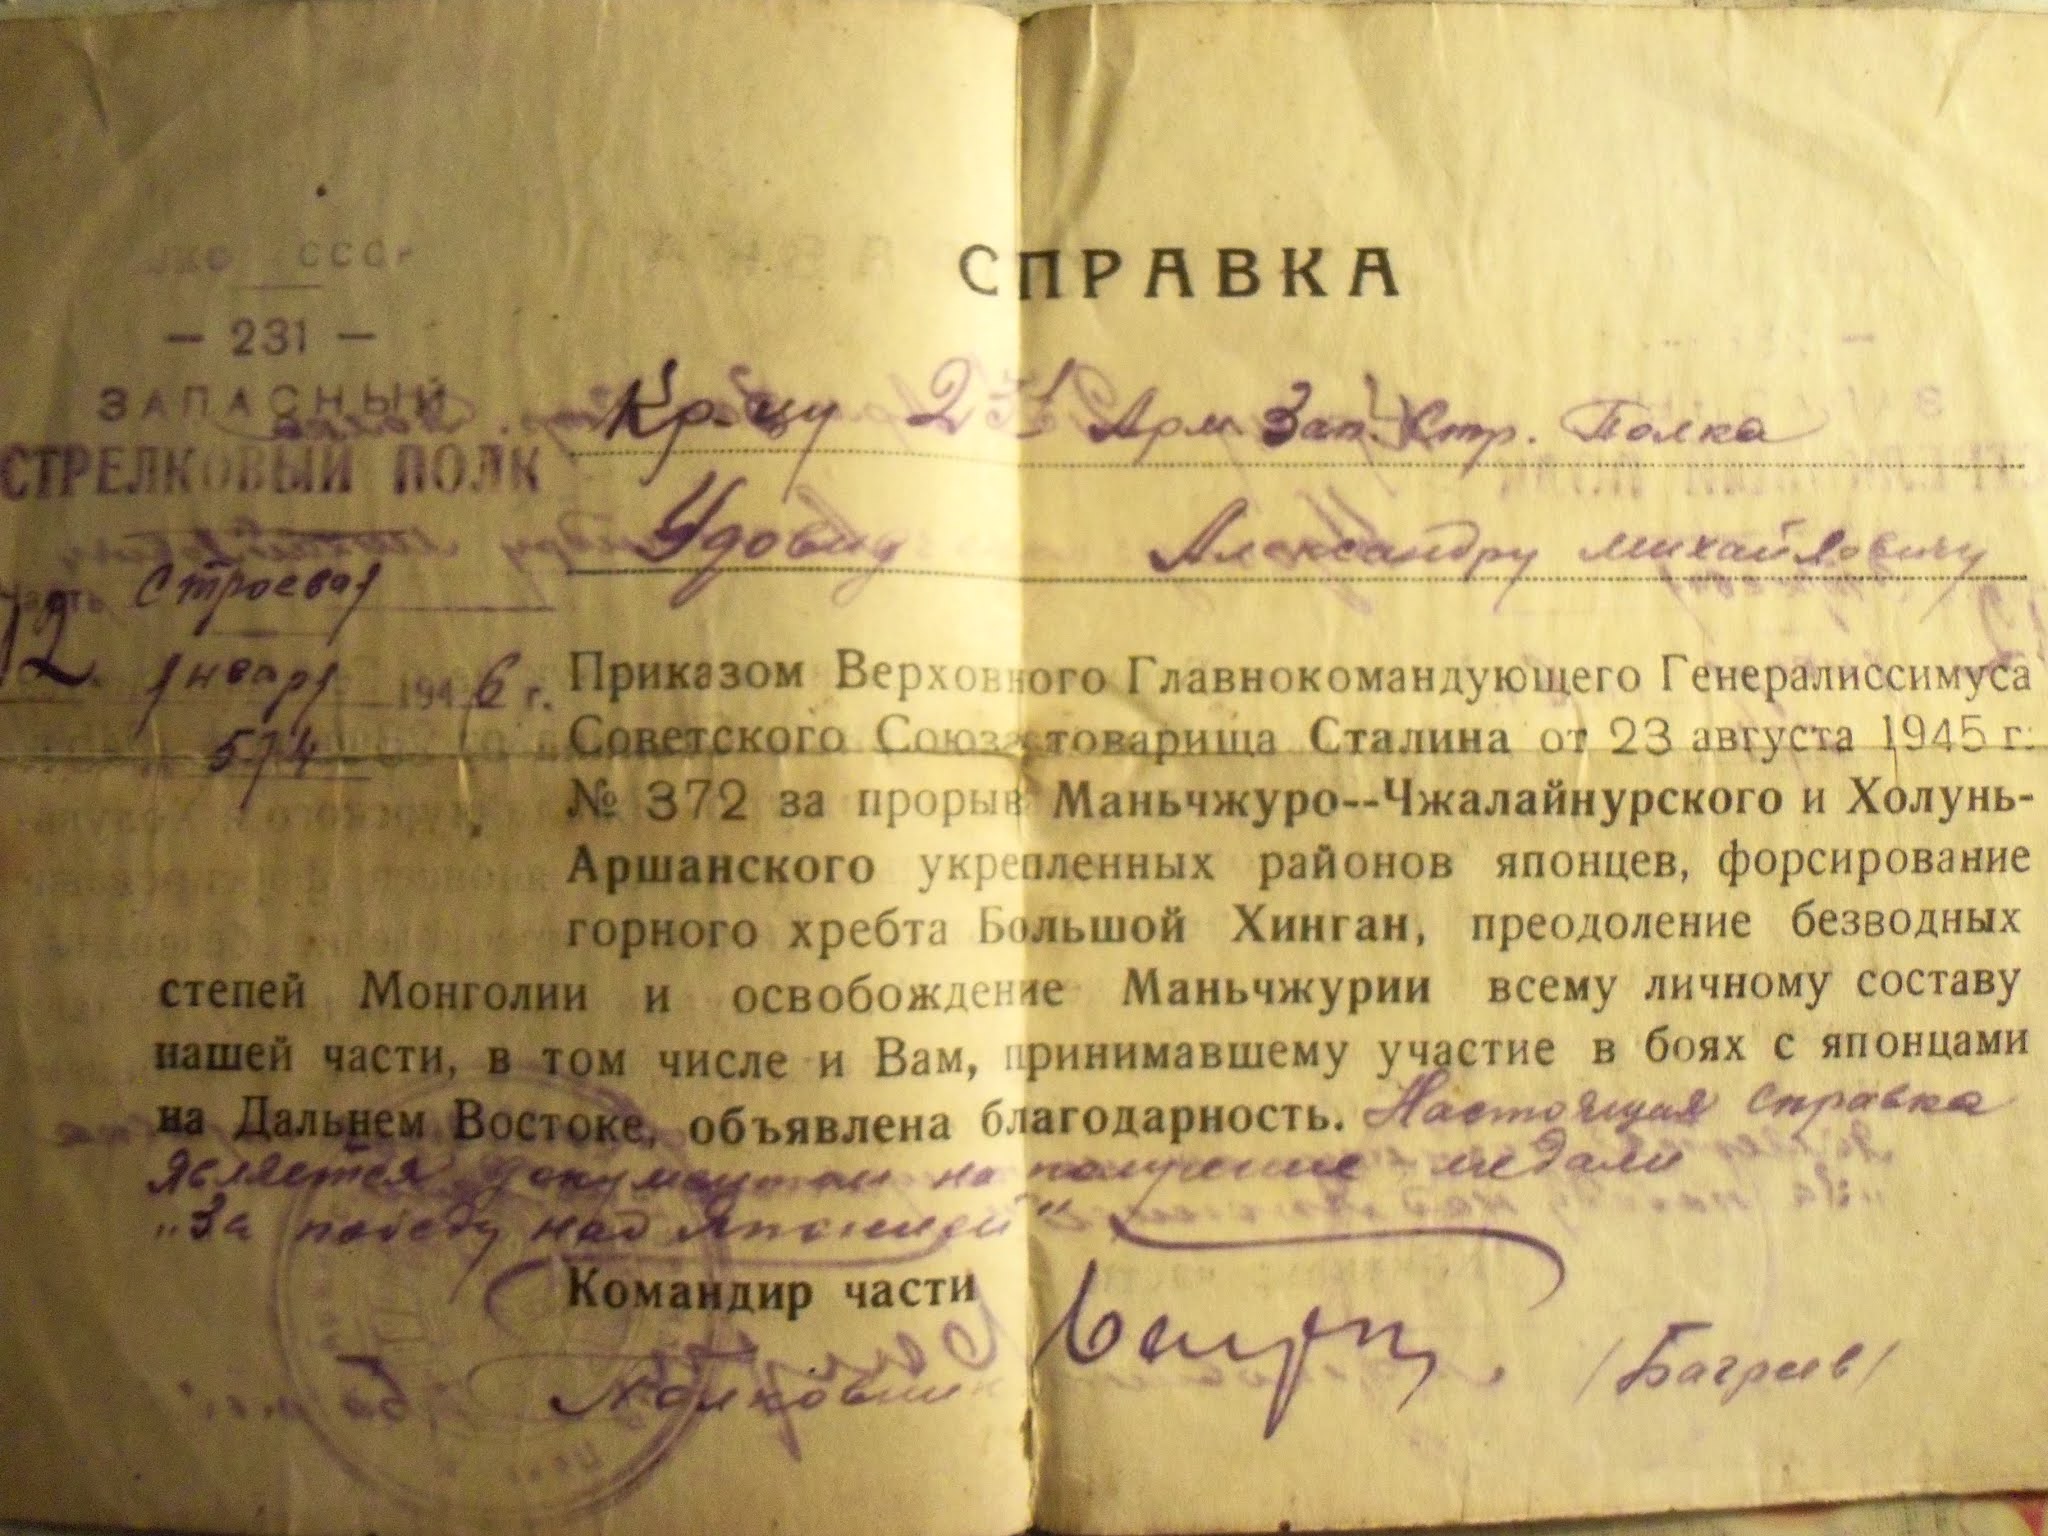 НКО СССР
— 231 —
ЗАПАСНЫЙ
СТРЕЛКОВЫЙ ПОЛК
Часть Строевая
12 января 1946 г.
574
СПРАВКА
Кр-цу 231 Арм. Зап. Стр. Полка
Удовиду Александру Михайловичу
Приказом Верховного Главнокомандующего Генералиссимуса
Советского Союза товарища Сталина от 23 августа 1945 г.
№ 372 за прорыв Маньчжуро--Чжалайнурского и Холунь-
Аршанского укрепленных районов японцев, форсирование
горного хребта Большой Хинган, преодоление безводных
степей Монголии и освобождение Маньчжурии всему личному составу
нашей части, в том числе и Вам, принимавшему участие в боях с японцами
на Дальнем Востоке, объявлена благодарность. Настоящая справка
является документом на получение медали
„За победу над Японией"
Командир части
Полковник /Багреев/